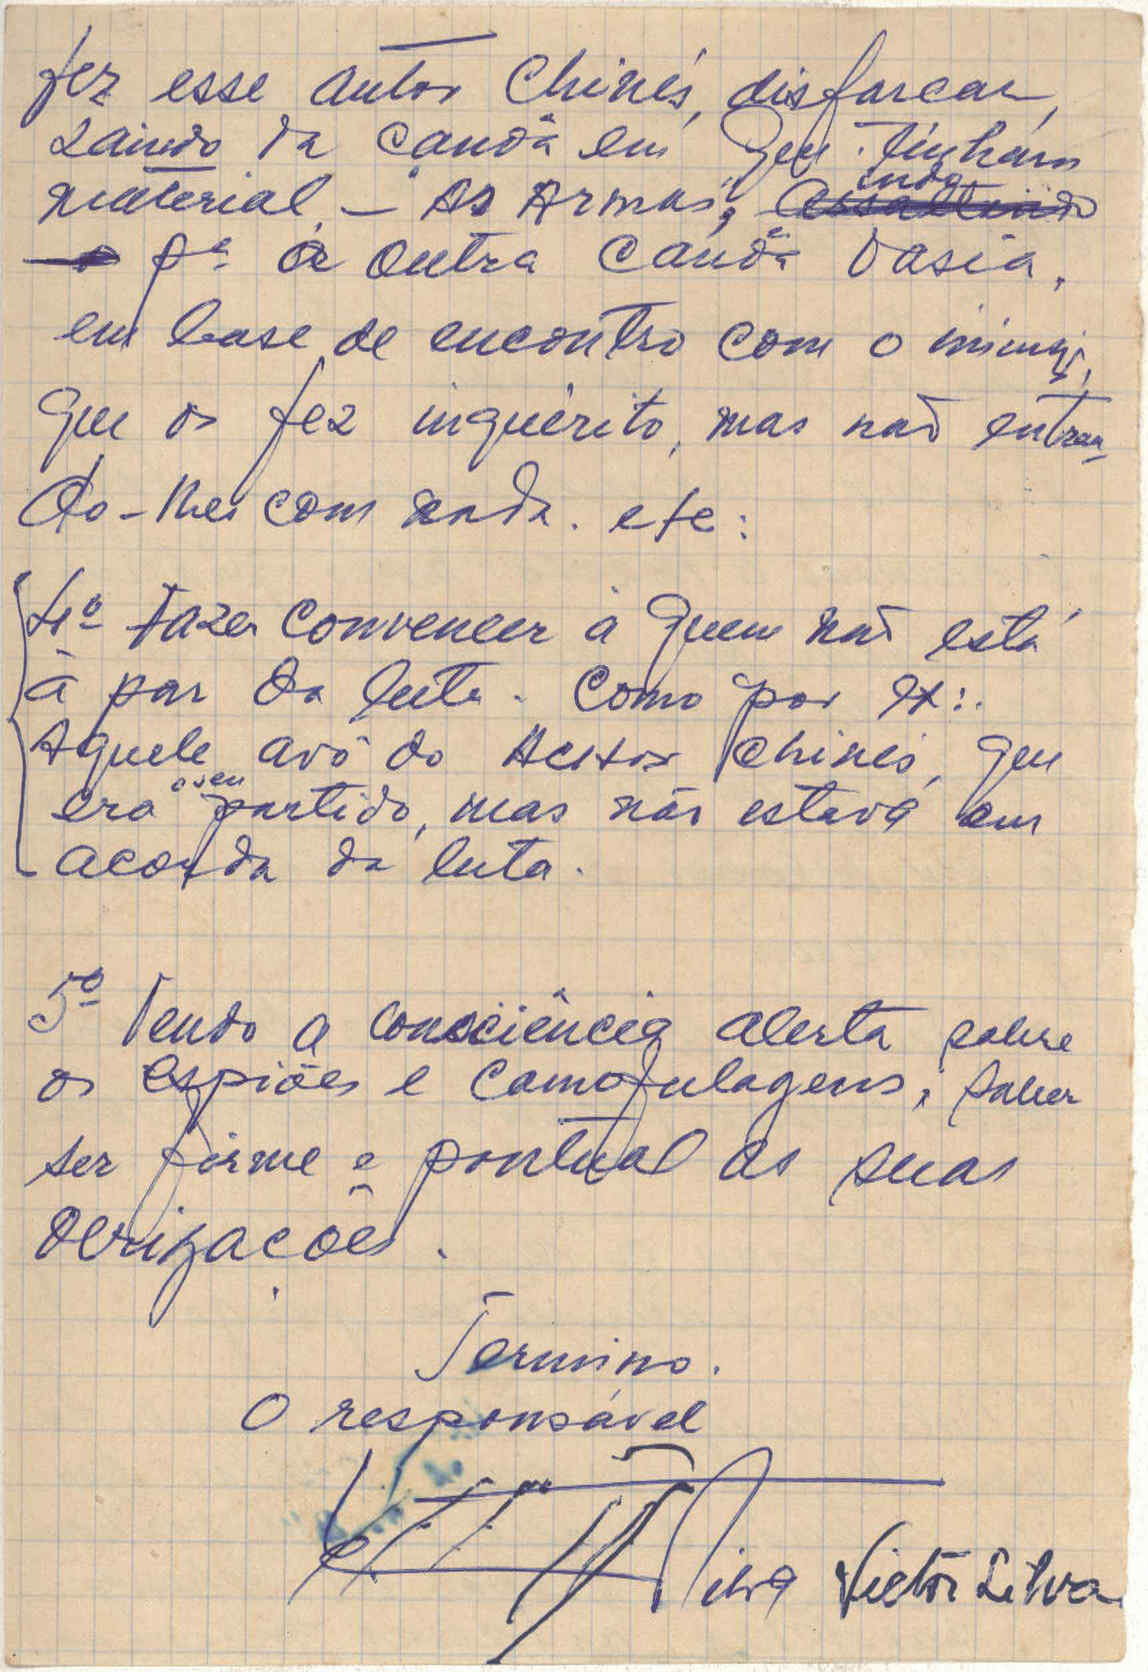 fez esse autor Chinês, disfarcar,
saindo da canôa em que tinham
material, — As Armas, indo
pª a outra canôa vasia,
em base de encontro com o inimigo,
que os fez inquérito, mas não entran-
do-lhes com nada. etc:
4º Fazer convencer á quem não está
á par da luta. Como por ex:.
Aquele avô do Actor chinês, que
era o seu partido, mas não estava em
acorda da luta.
5º Tendo a consciência alerta sobre
os espiões e camofulagens, saber
ser firme e pontual as suas
obrigações.
Termino.
O responsável
Silva Victôr Silva